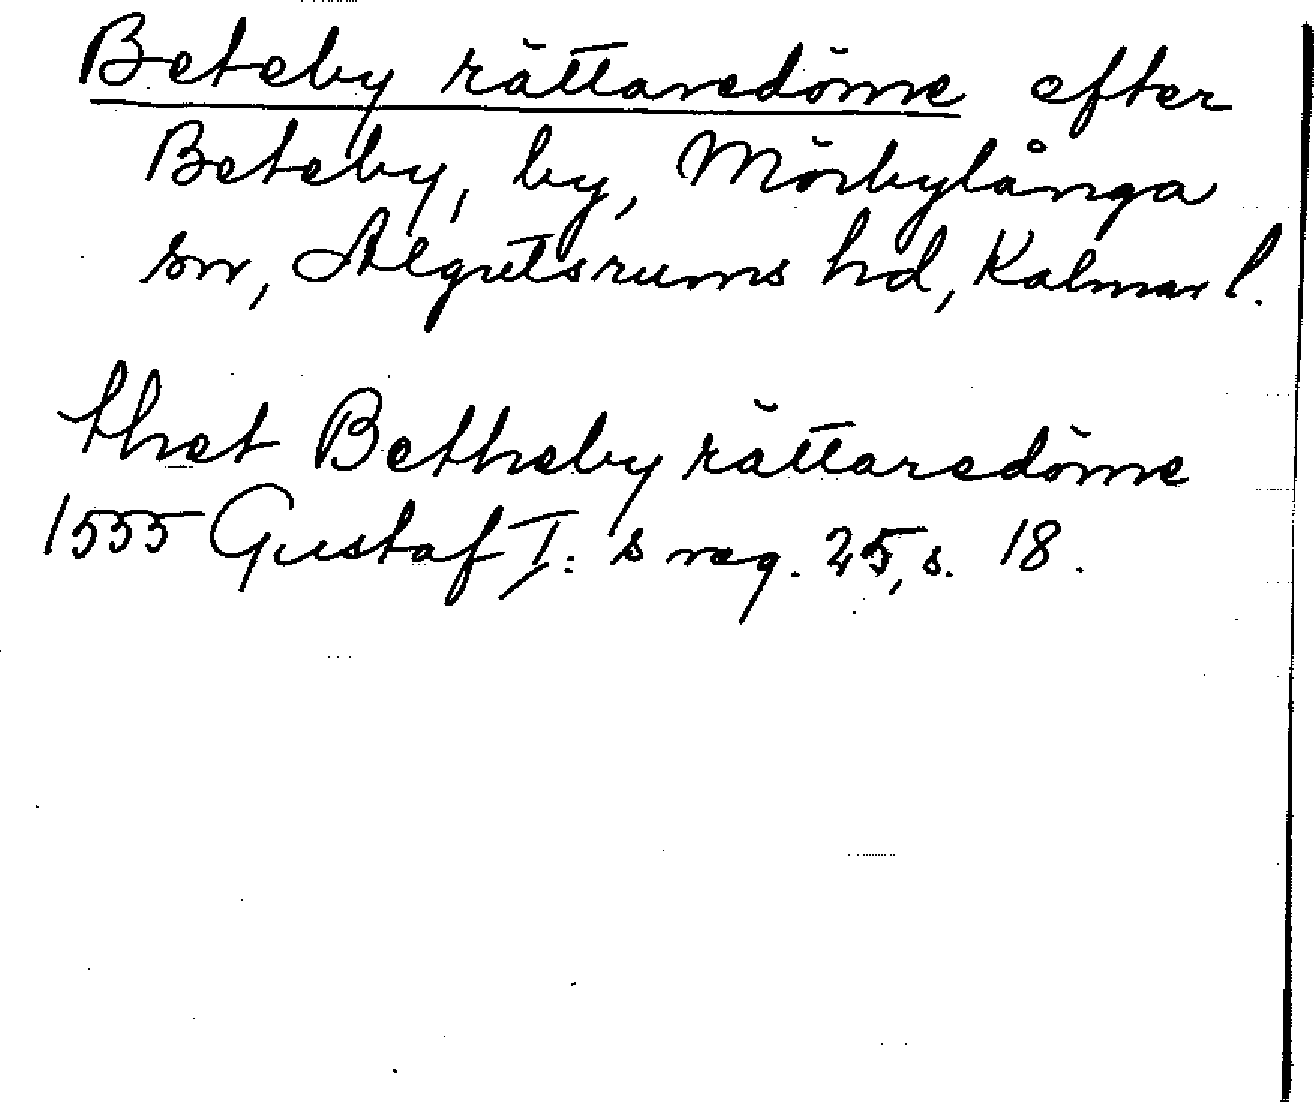 Beteby rättaredöme efter
Beteby, by, Mörbylånga
sn, Algutsrums hd, Kalmar l.
thet Betheby rättaredöme
1555 Gustaf I: s reg. 25, s. 18.